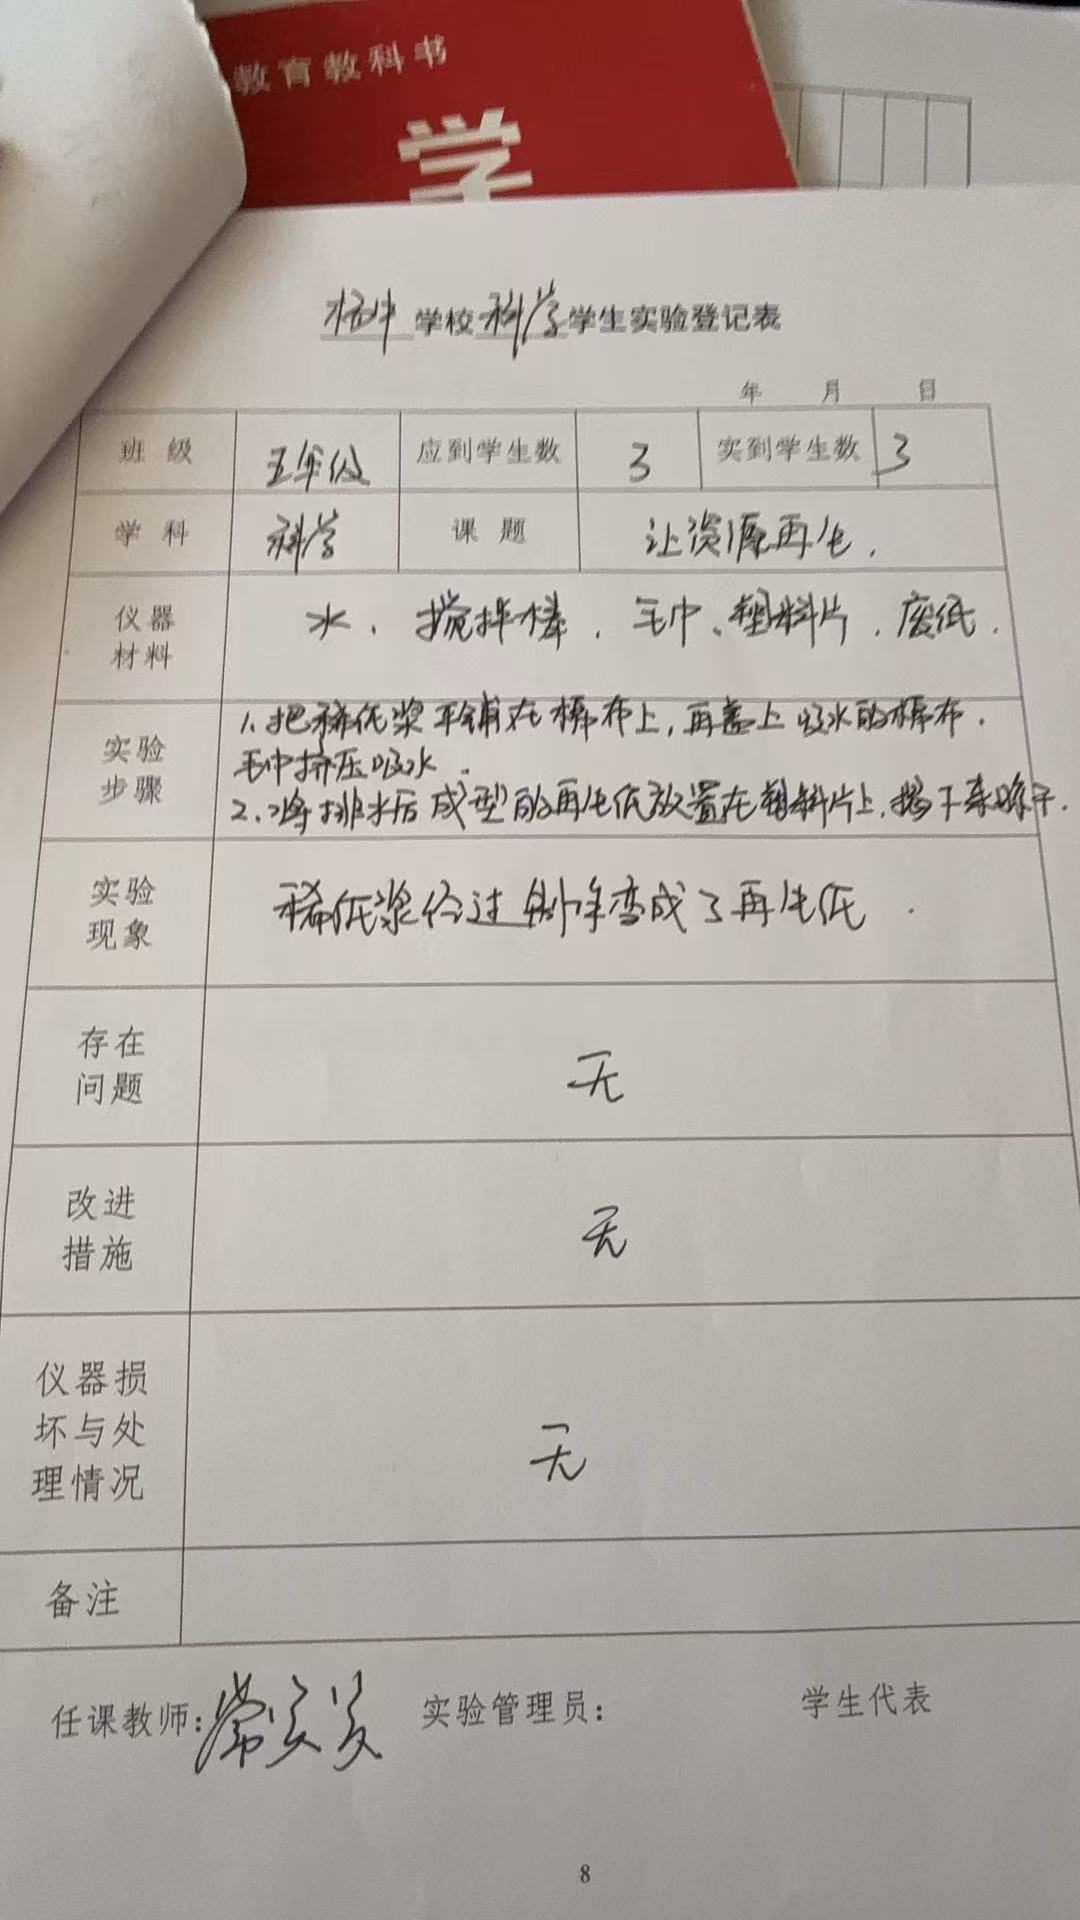 教育教科书
学
学校 科学 学生实验登记表
年 月 日
班级 五年级 应到学生数 3 实到学生数 3
学科 科学 课题 让资源再生.
仪器材料 水、搅拌棒、毛巾、塑料片、废纸.
实验步骤 1.把稀纸浆平铺在棉布上,再盖上吸水的棉布.
毛巾挤压吸水.
2.将排水后成型的再生纸放置在塑料片上,揭下来晾干.
实验现象 稀纸浆经过 变成了再生纸.
存在问题 无
改进措施 无
仪器损坏与处理情况 无
备注
任课教师: 实验管理员: 学生代表
8